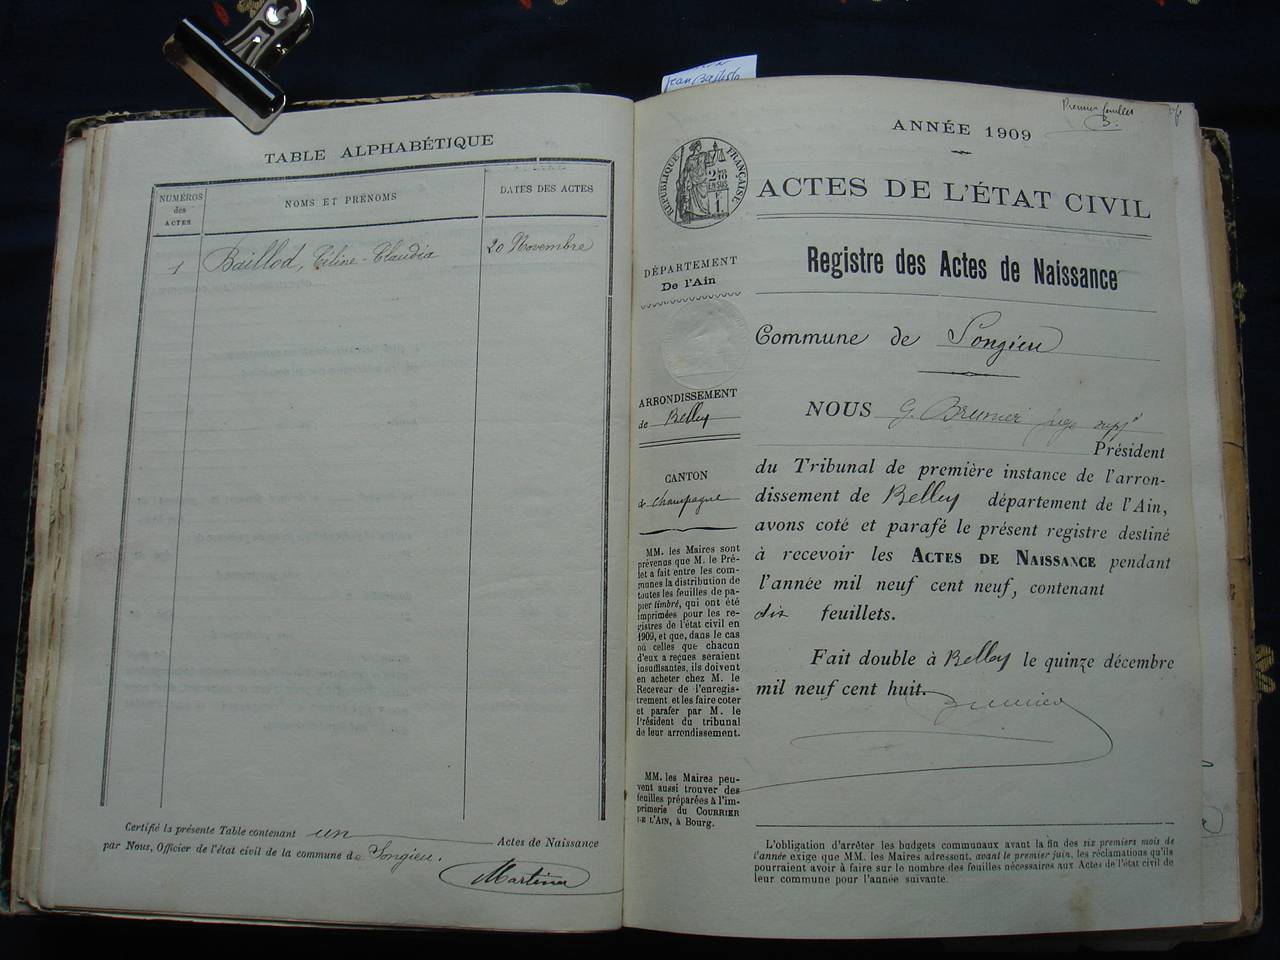 TABLE ALPHABÉTIQUE
NUMÉROS
des
ACTES
NOMS ET PRÉNOMS
DATES DES ACTES
1 Baillod, Céline-Claudia 20 Novembre
Certifié la présente Table contenant un Actes de Naissance
par Nous, Officier de l'état civil de la commune de Songieu.
Martin
Jean Baptiste
Premier feuillet
ANNÉE 1909
RÉPUBLIQUE FRANÇAISE
2 DES
EN SUS
F
1.
ACTES DE L'ÉTAT CIVIL
Registre des Actes de Naissance
DÉPARTEMENT
De l'Ain
Commune de Songieu
ARRONDISSEMENT
de Belley
CANTON
de Champagne
MM. les Maires sont
prévenus que M. le Pré-
let a fait entre les com-
munes la distribution de
toutes les feuilles de pa-
pier timbré, qui ont été
imprimées pour les re-
gistres de l'état civil en
1909, et que, dans le cas
où celles que chacun
d'eux a reçues seraient
insuffisantes, ils doivent
en acheter chez M. le
Receveur de l'enregis-
trement, et les faire coter
et parafer par M. le
Président du tribunal
de leur arrondissement.
MM. les Maires peu-
vent aussi trouver des
feuilles préparées à l'im-
primerie du COURRIER
DE L'AIN, à Bourg.
NOUS G. Brunier juge supt
Président
du Tribunal de première instance de l'arron-
dissement de Belley département de l'Ain,
avons coté et parafé le présent registre destiné
à recevoir les ACTES DE NAISSANCE pendant
l'année mil neuf cent neuf, contenant
dix feuillets.
Fait double à Belley le quinze décembre
mil neuf cent huit.
Brunier
L'obligation d'arrêter les budgets communaux avant la fin des six premiers mois de
l'année exige que MM. les Maires adressent, avant le premier juin, les réclamations qu'ils
pourraient avoir à faire sur le nombre des feuilles nécessaires aux Actes de l'état civil de
leur commune pour l'année suivante.